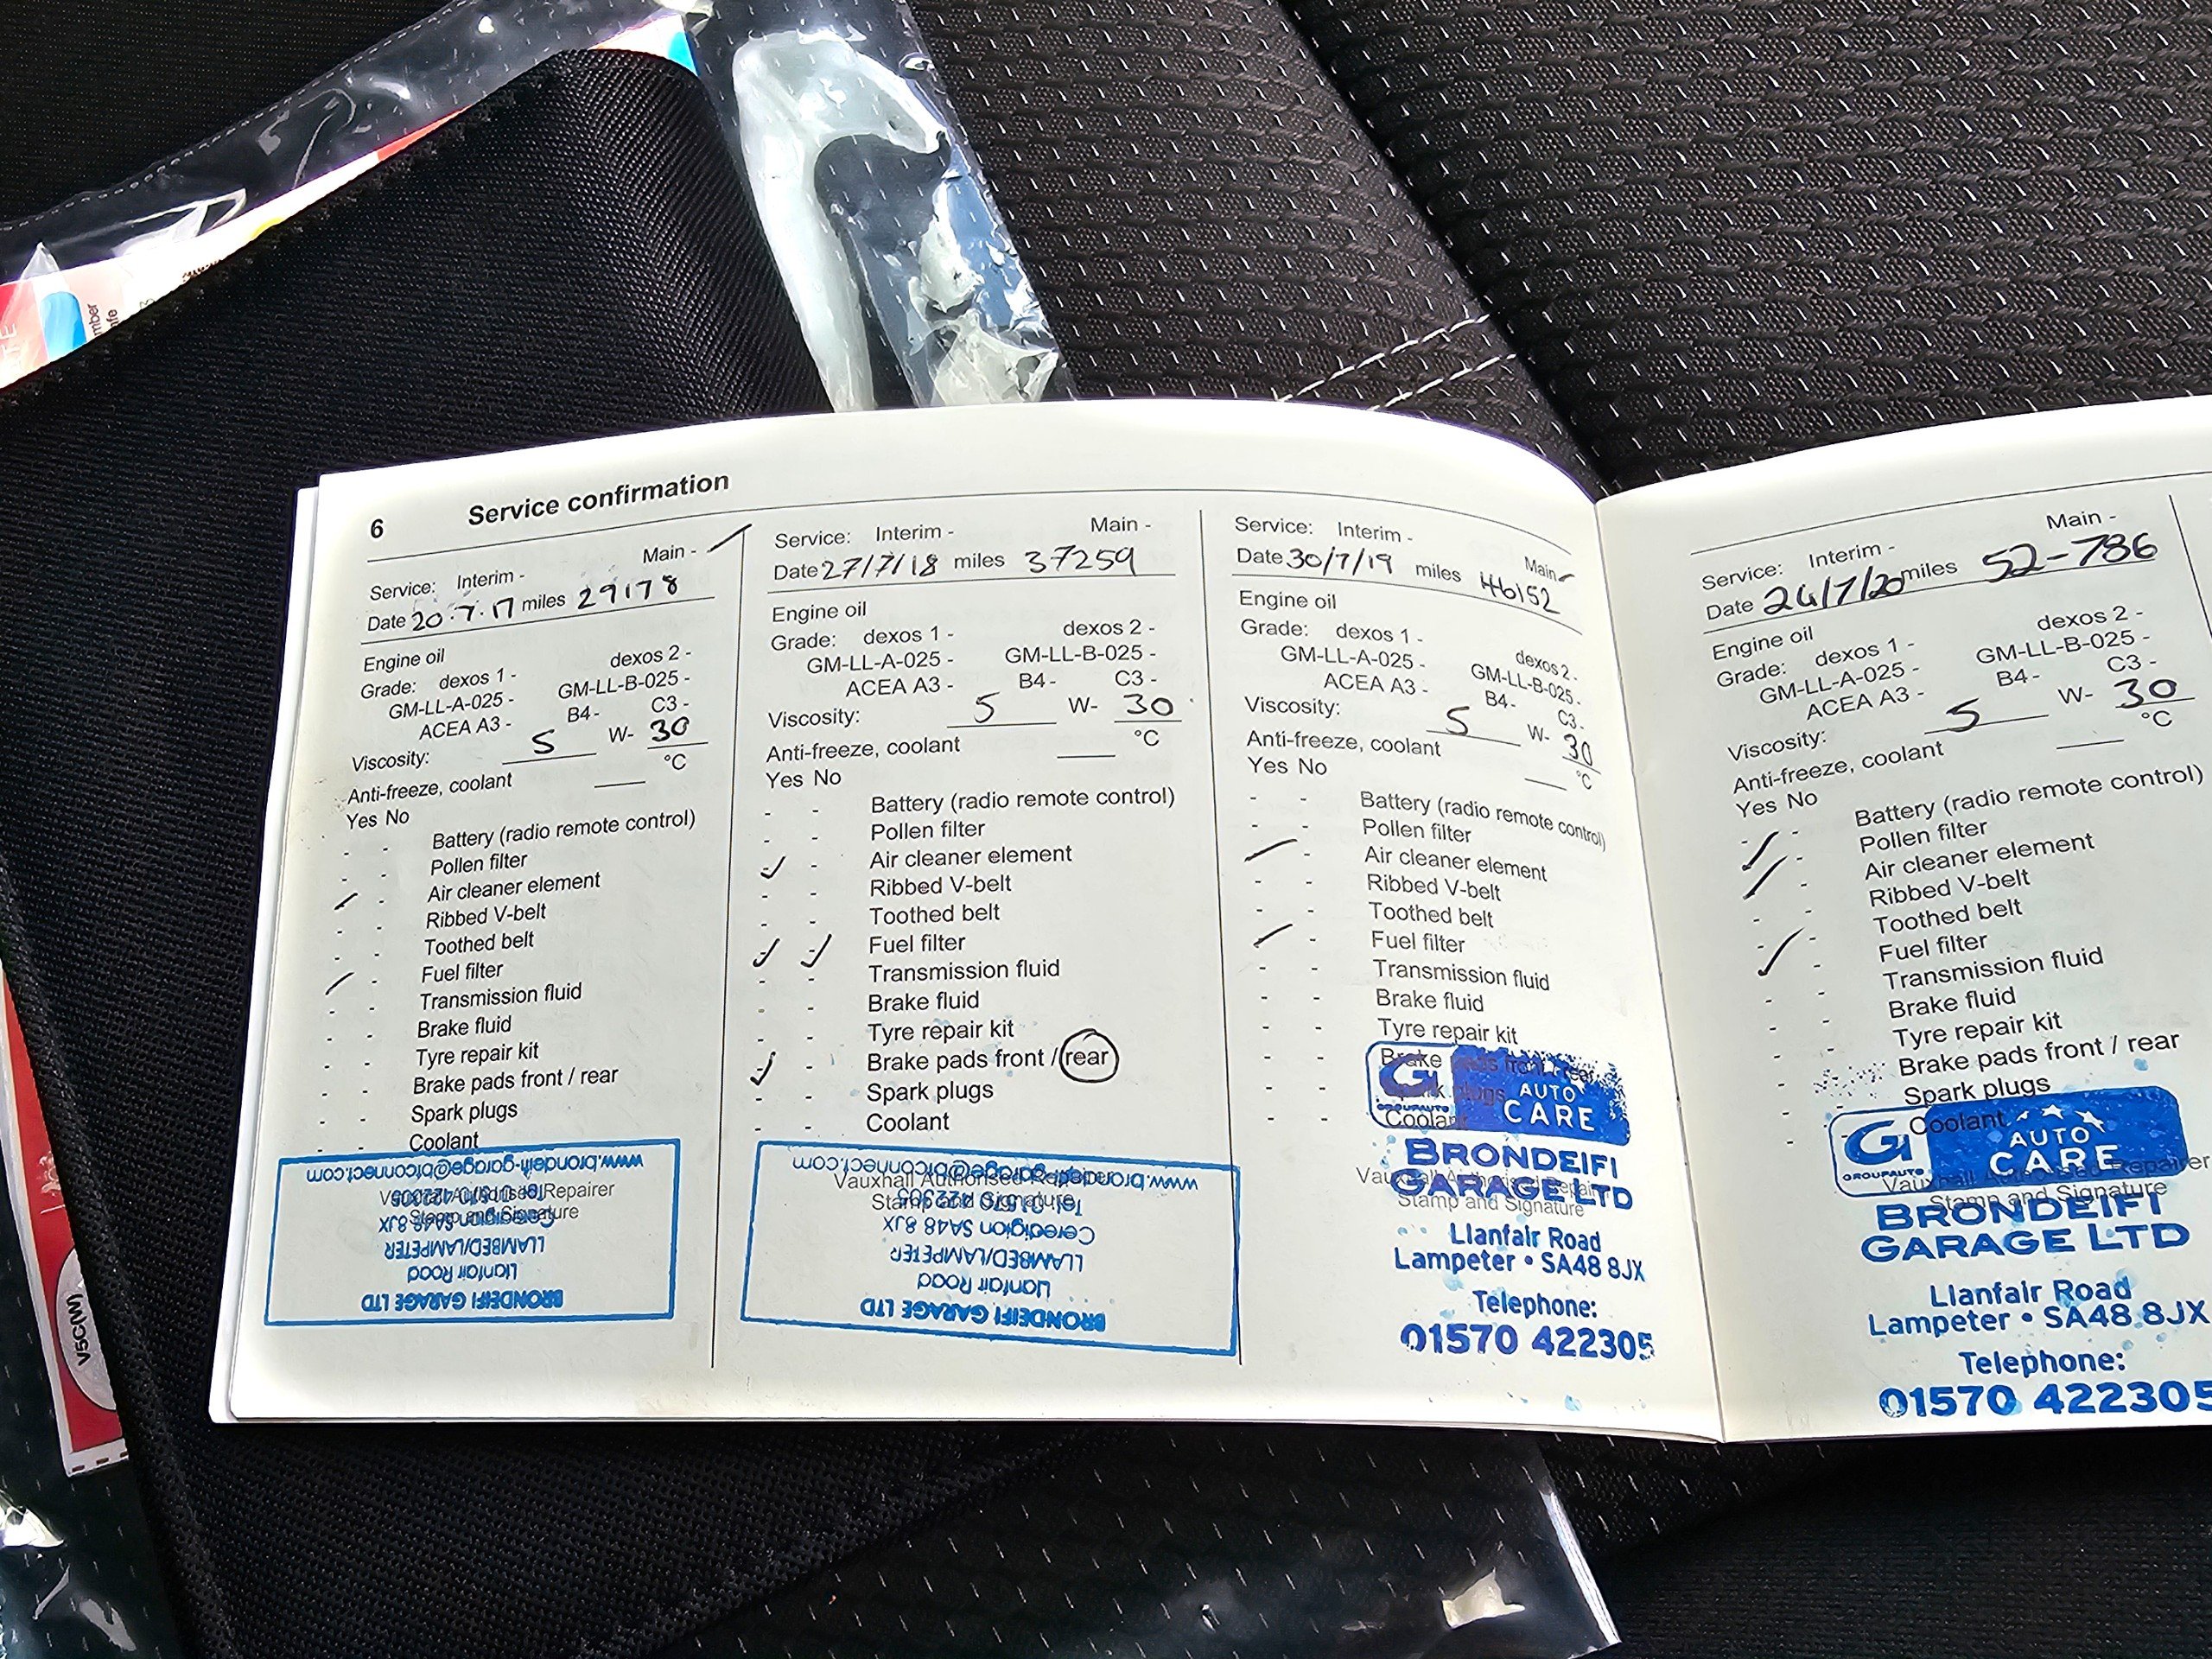 6 Service confirmation
Service: Interim - Main -
Date 20.7.17 miles 29178
Engine oil
Grade: dexos 1 - dexos 2 -
GM-LL-A-025 - GM-LL-B-025 -
ACEA A3 - B4 - C3 -
Viscosity: 5 W- 30
Anti-freeze, coolant °C
Yes No
- - Battery (radio remote control)
- - Pollen filter
- - Air cleaner element
- - Ribbed V-belt
- - Toothed belt
- - Fuel filter
- - Transmission fluid
- - Brake fluid
- - Tyre repair kit
- - Brake pads front / rear
- - Spark plugs
- - Coolant
Vauxhall Authorised Repairer
Stamp and Signature
BRONDEIFI GARAGE LTD
Llanfair Road
LLAMBED/LAMPETER
Ceredigion SA48 8JX
Tel: 01570 422305
www.brondeifi-garage@btconnect.com
Service: Interim - Main -
Date 27/7/18 miles 37259
Engine oil
Grade: dexos 1 - dexos 2 -
GM-LL-A-025 - GM-LL-B-025 -
ACEA A3 - B4 - C3 -
Viscosity: 5 W- 30
Anti-freeze, coolant °C
Yes No
- - Battery (radio remote control)
- - Pollen filter
- - Air cleaner element
- - Ribbed V-belt
- - Toothed belt
- - Fuel filter
- - Transmission fluid
- - Brake fluid
- - Tyre repair kit
- - Brake pads front / rear
- - Spark plugs
- - Coolant
Vauxhall Authorised Repairer
Stamp and Signature
BRONDEIFI GARAGE LTD
Llanfair Road
LLAMBED/LAMPETER
Ceredigion SA48 8JX
Tel: 01570 422305
www.brondeifi-garage@btconnect.com
Service: Interim - Main -
Date 30/7/19 miles 46152
Engine oil
Grade: dexos 1 - dexos 2 -
GM-LL-A-025 - GM-LL-B-025 -
ACEA A3 - B4 - C3 -
Viscosity: 5 W- 30
Anti-freeze, coolant °C
Yes No
- - Battery (radio remote control)
- - Pollen filter
- - Air cleaner element
- - Ribbed V-belt
- - Toothed belt
- - Fuel filter
- - Transmission fluid
- - Brake fluid
- - Tyre repair kit
- - Brake pads front / rear
- - Spark plugs
- - Coolant
G1 AUTO CARE
GROUPAUTO
Vauxhall Authorised Repairer
Stamp and Signature
BRONDEIFI
GARAGE LTD
Llanfair Road
Lampeter • SA48 8JX
Telephone:
01570 422305
Service: Interim - Main -
Date 24/7/20 miles 52-786
Engine oil
Grade: dexos 1 - dexos 2 -
GM-LL-A-025 - GM-LL-B-025 -
ACEA A3 - B4 - C3 -
Viscosity: 5 W- 30
Anti-freeze, coolant °C
Yes No
- - Battery (radio remote control)
- - Pollen filter
- - Air cleaner element
- - Ribbed V-belt
- - Toothed belt
- - Fuel filter
- - Transmission fluid
- - Brake fluid
- - Tyre repair kit
- - Brake pads front / rear
- - Spark plugs
- - Coolant
G1 AUTO CARE
GROUPAUTO
Vauxhall Authorised Repairer
Stamp and Signature
BRONDEIFI
GARAGE LTD
Llanfair Road
Lampeter • SA48 8JX
Telephone:
01570 422305
V5C(W)